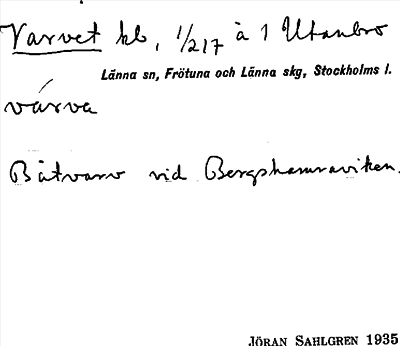 Varvet kb, 1/217 à 1 Utanbro
Länna sn, Frötuna och Länna skg, Stockholms l.
várva
Båtvarv vid Bergshamraviken.
JÖRAN SAHLGREN 1935